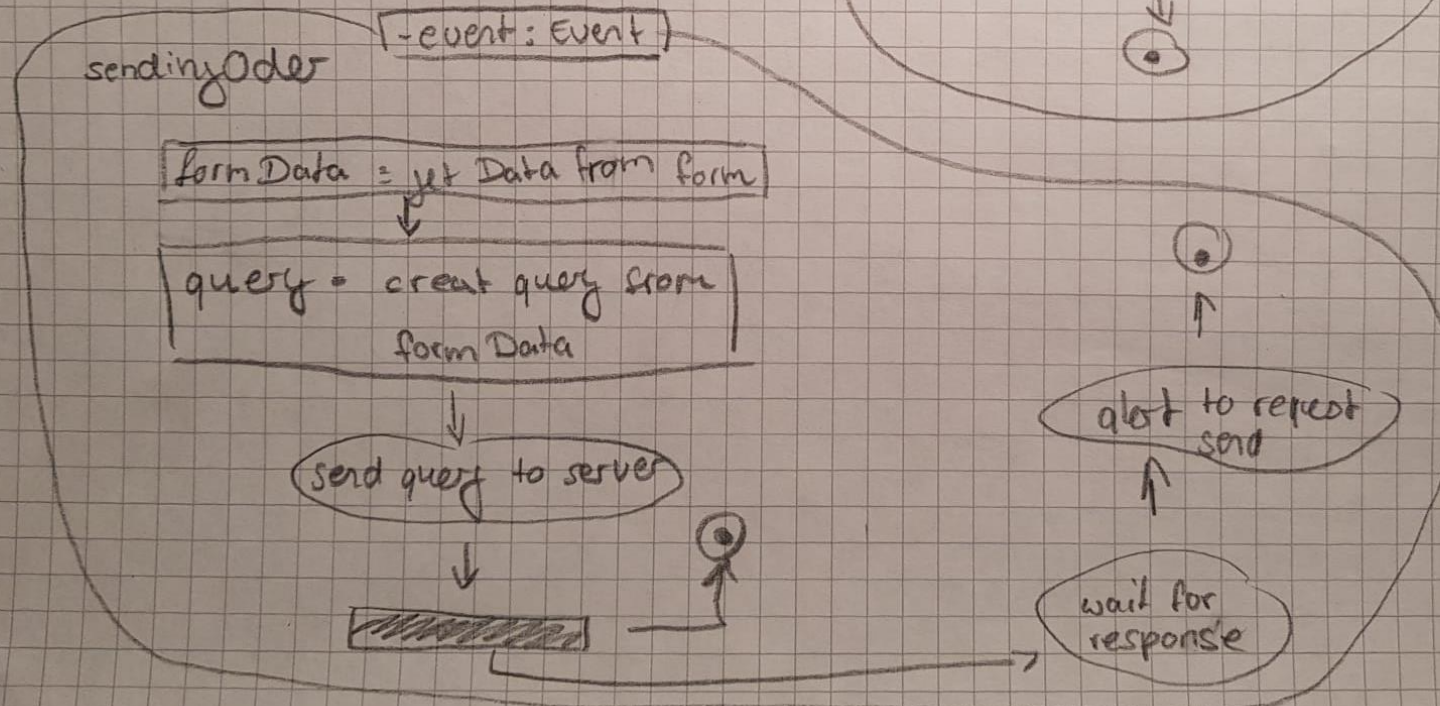 -event: Event
sendingOder
formData = get Data from form
query = creat query from
formData
send query to server
alert to repeat
send
wait for
response